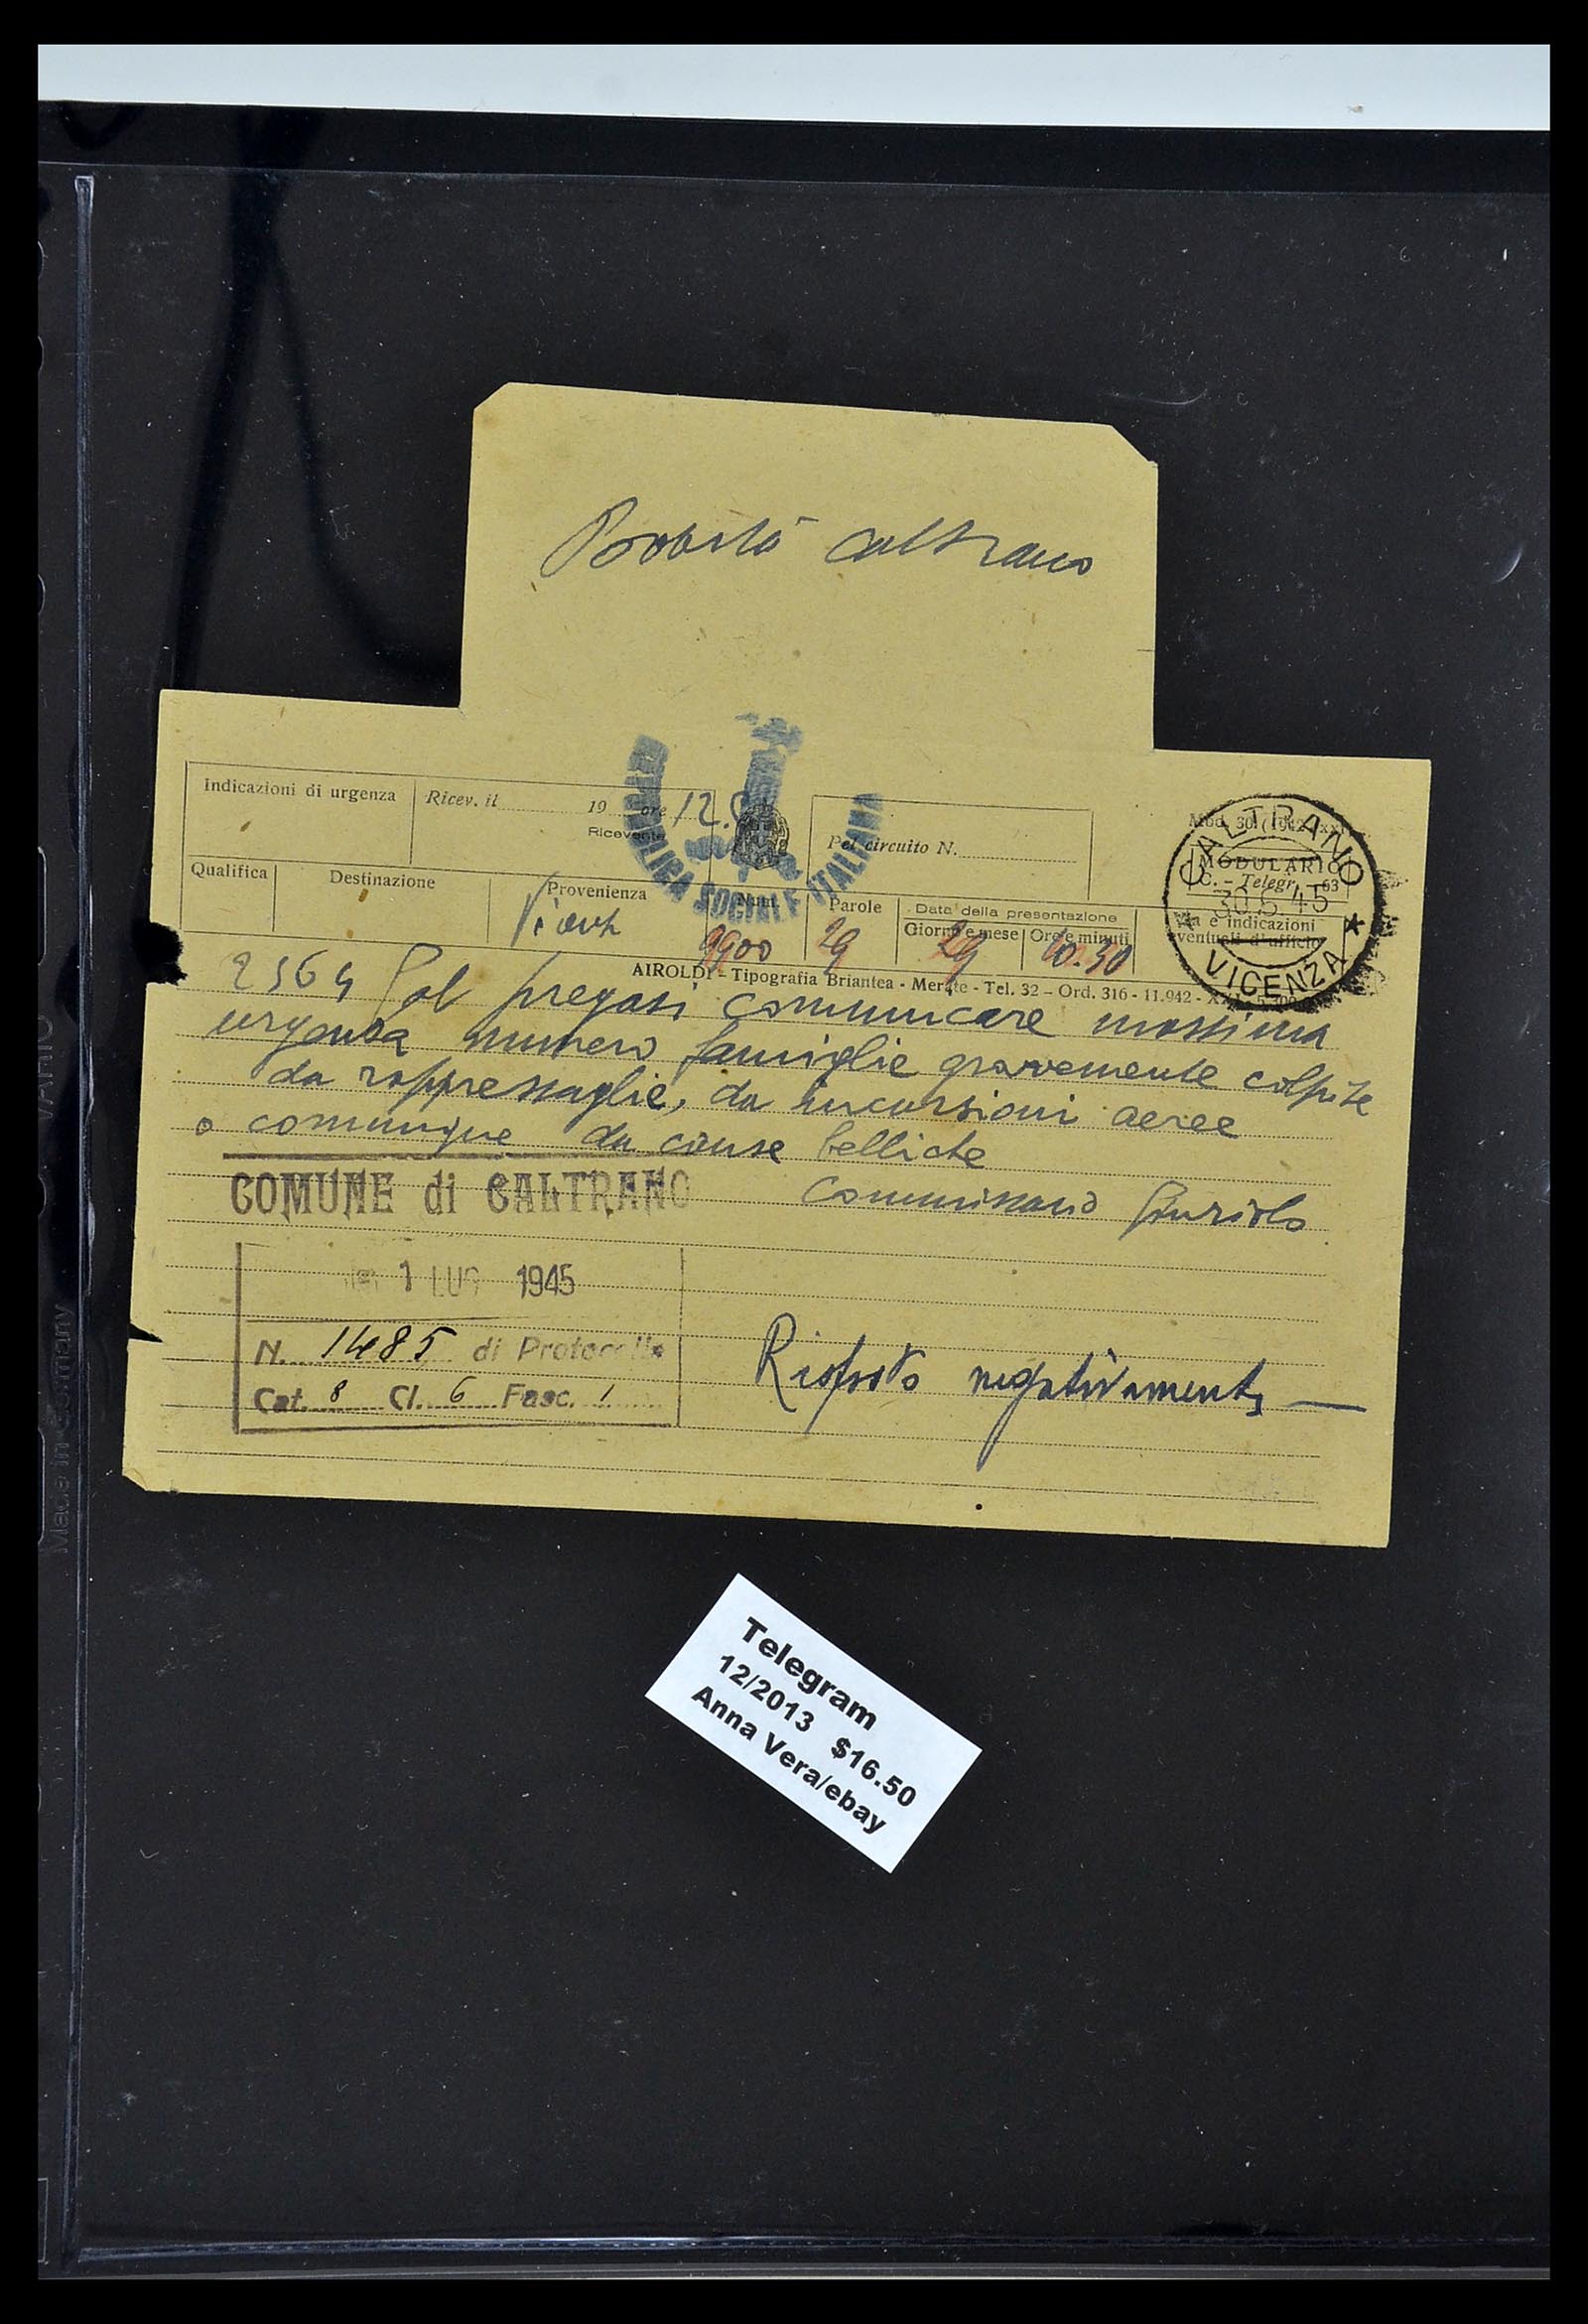 caltrano
Indicazioni di urgenza
Ricev. il 19 ore 12.
Ricevente
Pel circuito N.
REPUBBLICA SOCIALE ITALIANA
Qualifica Destinazione Provenienza Num. Parole Data della presentazione
Giorno e mese Ore e minuti
9900 29 29 10.30
MODULARIO
C. - Telegr. - 63
Via e indicazioni
eventuali d'ufficio
CALTRANO
30.6.45
VICENZA
AIROLDI - Tipografia Briantea - Merate - Tel. 32 - Ord. 316 - 11.942 -
2564 Gab pregasi comunicare massima
urgenza numero famiglie gravemente colpite
da rappresaglie, da incursioni aeree
o comunque da cause belliche
Commissario
COMUNE di CALTRANO
1 LUG 1945
N. 1485 di Protocollo
Cat. 8 Cl. 6 Fasc. 1
Risposto negativamente
Telegram
12/2013 $16.50
Anna Vera/ebay
Made in Germany